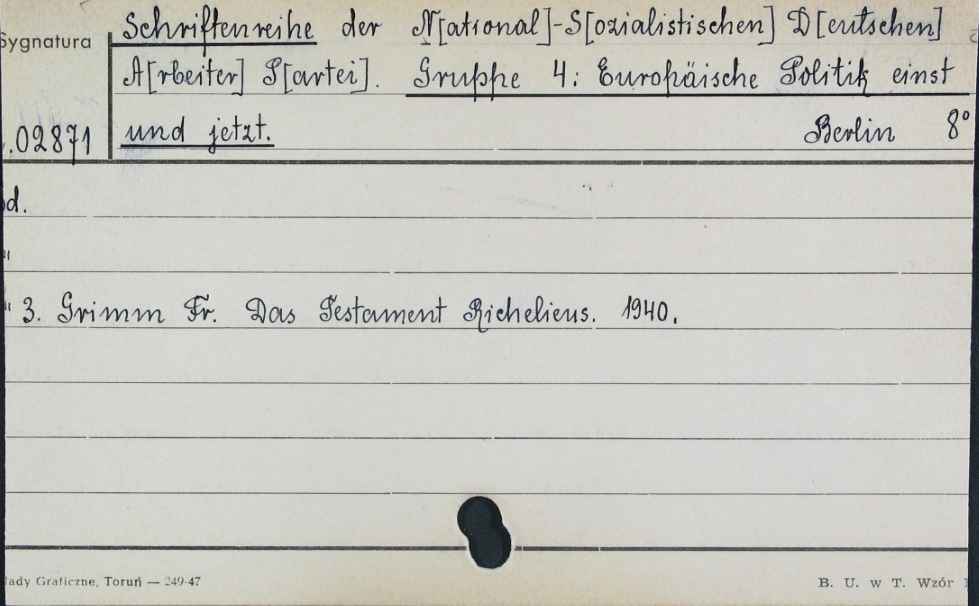 Sygnatura
Schriftenreihe der N[ational]-S[ozialistischen] D[eutschen]
A[rbeiter] P[artei]. Gruppe 4: Europäische Politik einst
.02871 und jetzt. Berlin 8°
d.
"
" 3. Grimm Fr. Das Testament Richelieus. 1940.
łady Graficzne, Toruń — 249-47 B. U. w T. Wzór